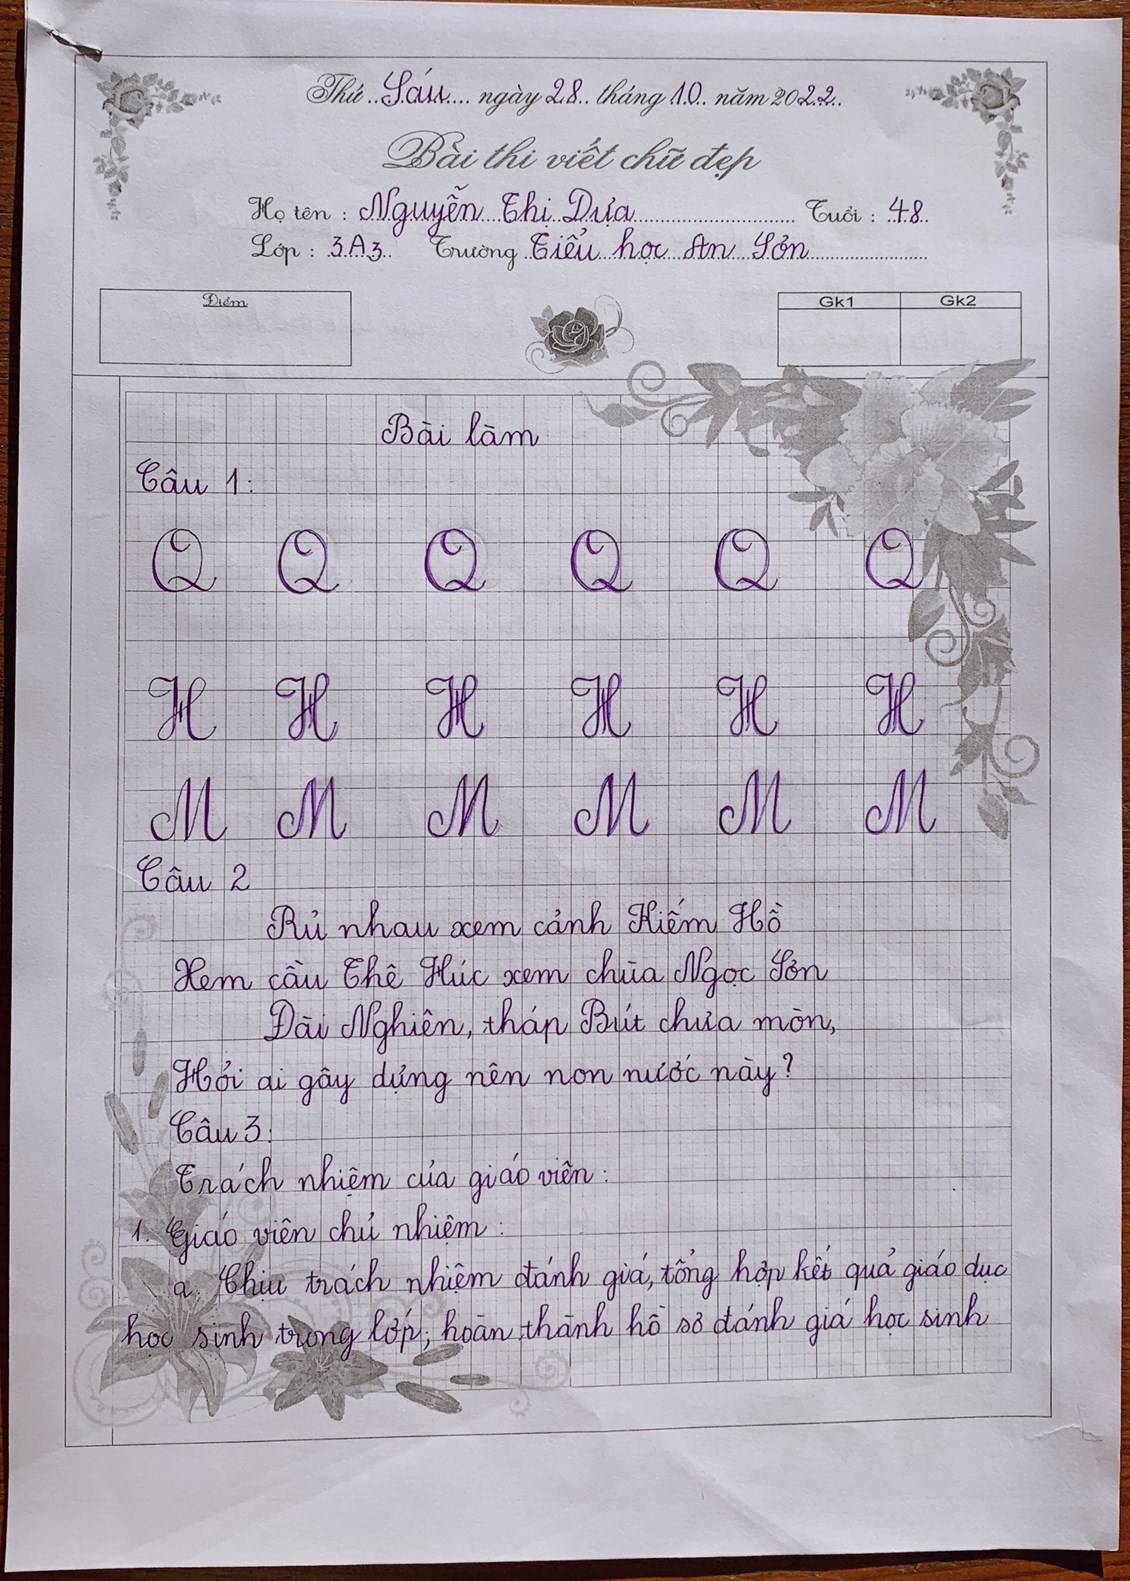 Thứ Sáu ngày 28 tháng 10 năm 2022
Bài thi viết chữ đẹp
Họ tên : Nguyễn Thị Dựa Tuổi : 48
Lớp : 3A3 Trường Tiểu học An Sơn
Điểm
Gk1 Gk2
Bài làm
Câu 1:
Q Q Q Q Q Q
H H H H H H
M M M M M M
Câu 2
Rủ nhau xem cảnh Kiếm Hồ
Xem cầu Thê Húc xem chùa Ngọc Sơn
Đài Nghiên, tháp Bút chưa mòn,
Hỏi ai gây dựng nên non nước này?
Câu 3:
Trách nhiệm của giáo viên:
1. Giáo viên chủ nhiệm :
a. Chịu trách nhiệm đánh giá, tổng hợp kết quả giáo dục
học sinh trong lớp; hoàn thành hồ sơ đánh giá học sinh